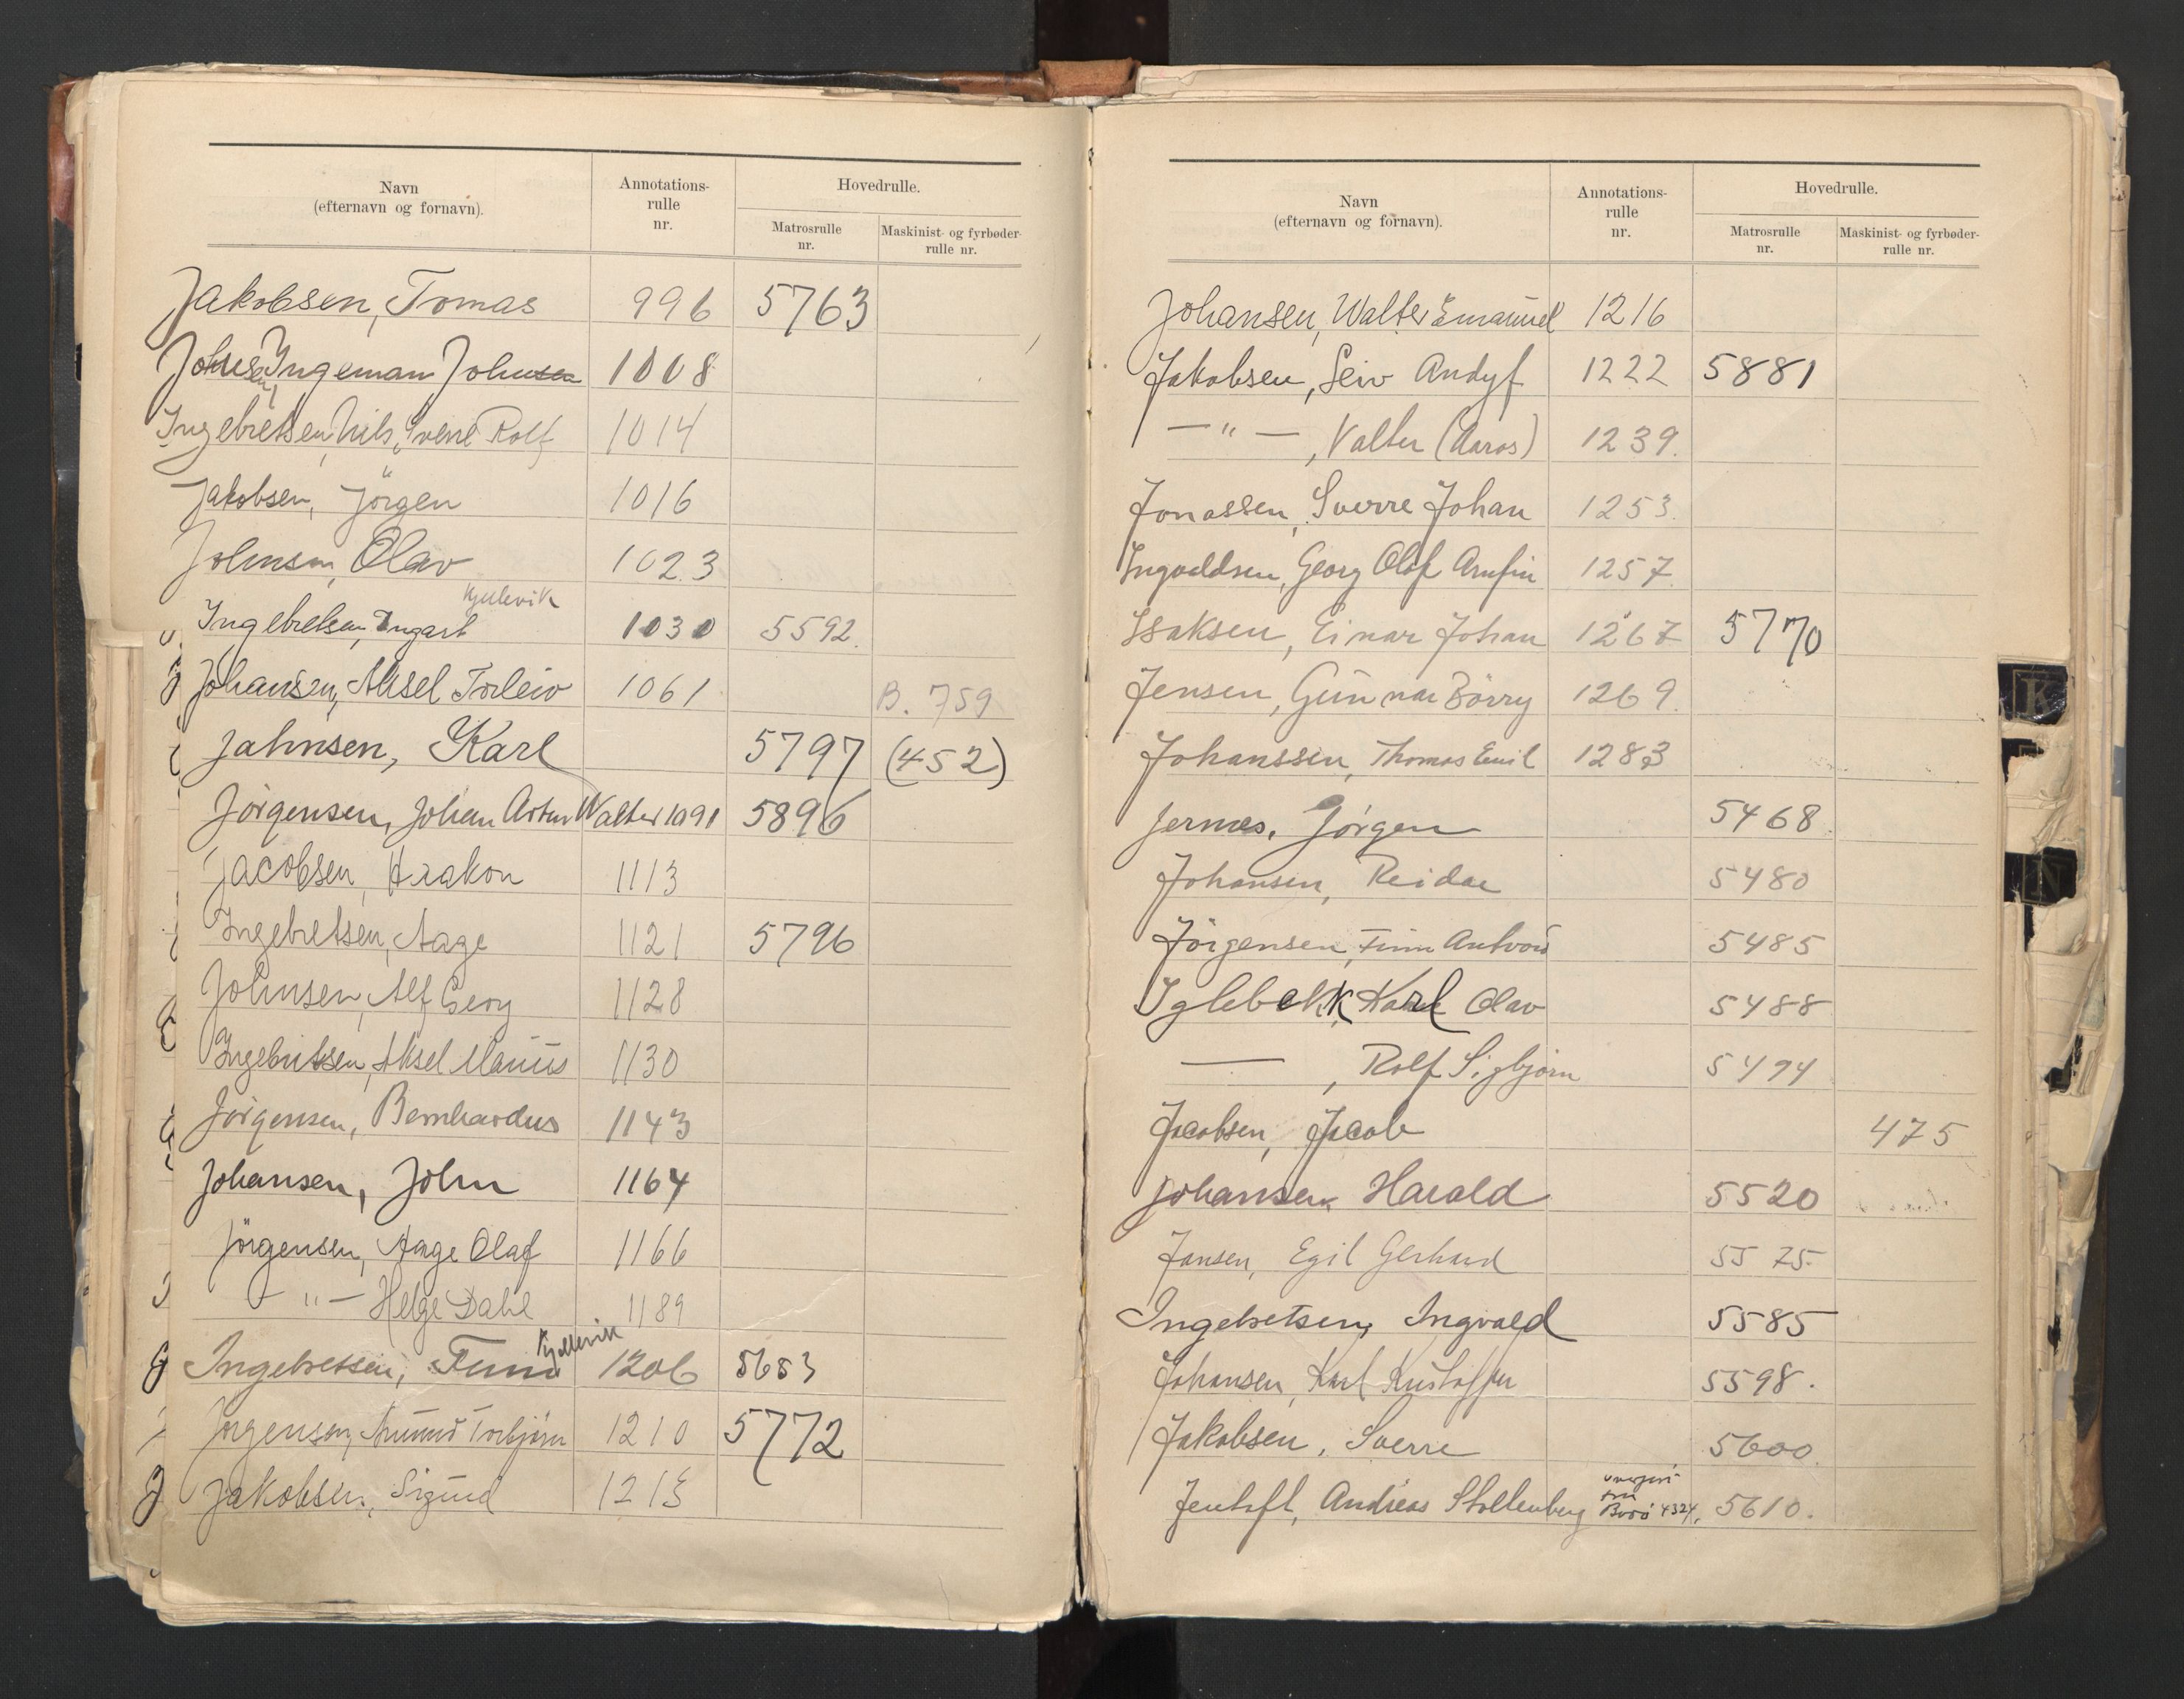 Navn
(efternavn og fornavn).
Annotations-
rulle
nr.
Hovedrulle.
Matrosrulle
nr.
Maskinist- og fyrbøder-
rulle nr.
Jakobsen, Tomas 996 5763
Johnsen, Ingeman Johnsen 1008
Ingebretsen, Nils Sverre Rolf 1014
Jakobsen, Jörgen 1016
Johnsen, Olav 1023
Kjellevik
Ingebretsen, Ingart 1030 5592.
Johansen, Aksel Torleiv 1061 B. 759
Jahnsen, Karl 5797 (452)
Jörgensen, Johan Artur Walter 1091 5896
Jacobsen, Haakon 1113
Ingebretsen, Aage 1121 5796
Johnsen, Alf Georg 1128
Ingebretsen, Aksel Marius 1130
Jörgensen, Bernhardus 1143
Johansen, John 1164
Jörgensen, Aage Olaf 1166
— " — Helge Dahl 1189
Kjellevik
Ingebretsen, Finn 1206 5683
Jörgensen, Amund Torbjörn 1210 5772
Jakobsen, Sigurd 1215
Navn
(efternavn og fornavn).
Annotations-
rulle
nr.
Hovedrulle.
Matrosrulle
nr.
Maskinist- og fyrbøder-
rulle nr.
Johansen, Walter Emanuel 1216
Jakobsen, Leiv Andyf 1222 5881
— " — , Valter (Aaros) 1239.
Jonassen, Sverre Johan 1253.
Ingvaldsen, Georg Olaf Arnfin 1257.
Isaksen, Einar Johan 1267 5770
Jensen, Gunnar Börry 1269.
Johanssen, Thomas Emil 1283
Jernes, Jörgen 5468.
Johansen, Reidar 5480
Jörgensen, Finn Antvord 5485
Iglebekk, Karl Olav 5488
— , Rolf Sigbjørn 5494
Jacobsen, Jacob 475
Johansen, Harald 5520
Jansen, Egil Gerhard 5575.
Ingebretsen, Ingvald 5585
Johansen, Karl Kristoffer 5598.
Jakobsen, Sverre 5600.
fra
Jentoft, Andreas Stoltenberg Bodö 4324. 5610.
K
N